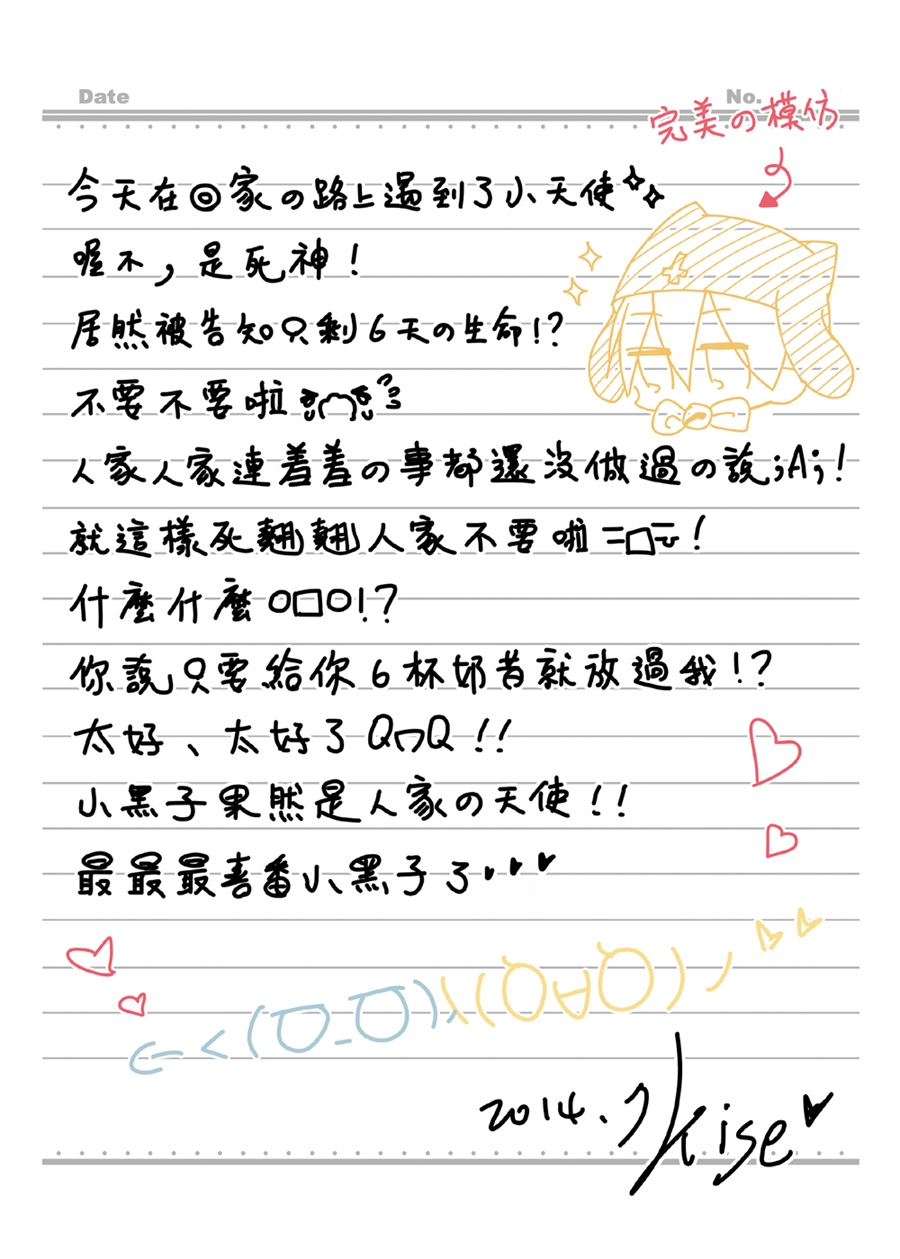 Date
No.
完美の模仿
今天在回家の路上遇到了小天使
喔不，是死神！
居然被告知只剩6天の生命!?
不要不要啦
人家人家連羞羞の事都還沒做過の說;A;!
就這樣死翹翹人家不要啦=口=!
什麼什麼O口O!?
你說只要給你6杯奶昔就放過我!?
太好、太好了QnQ!!
小黑子果然是人家の天使!!
最最最喜番小黑子了♥♥♥
2014.7
Kise♥